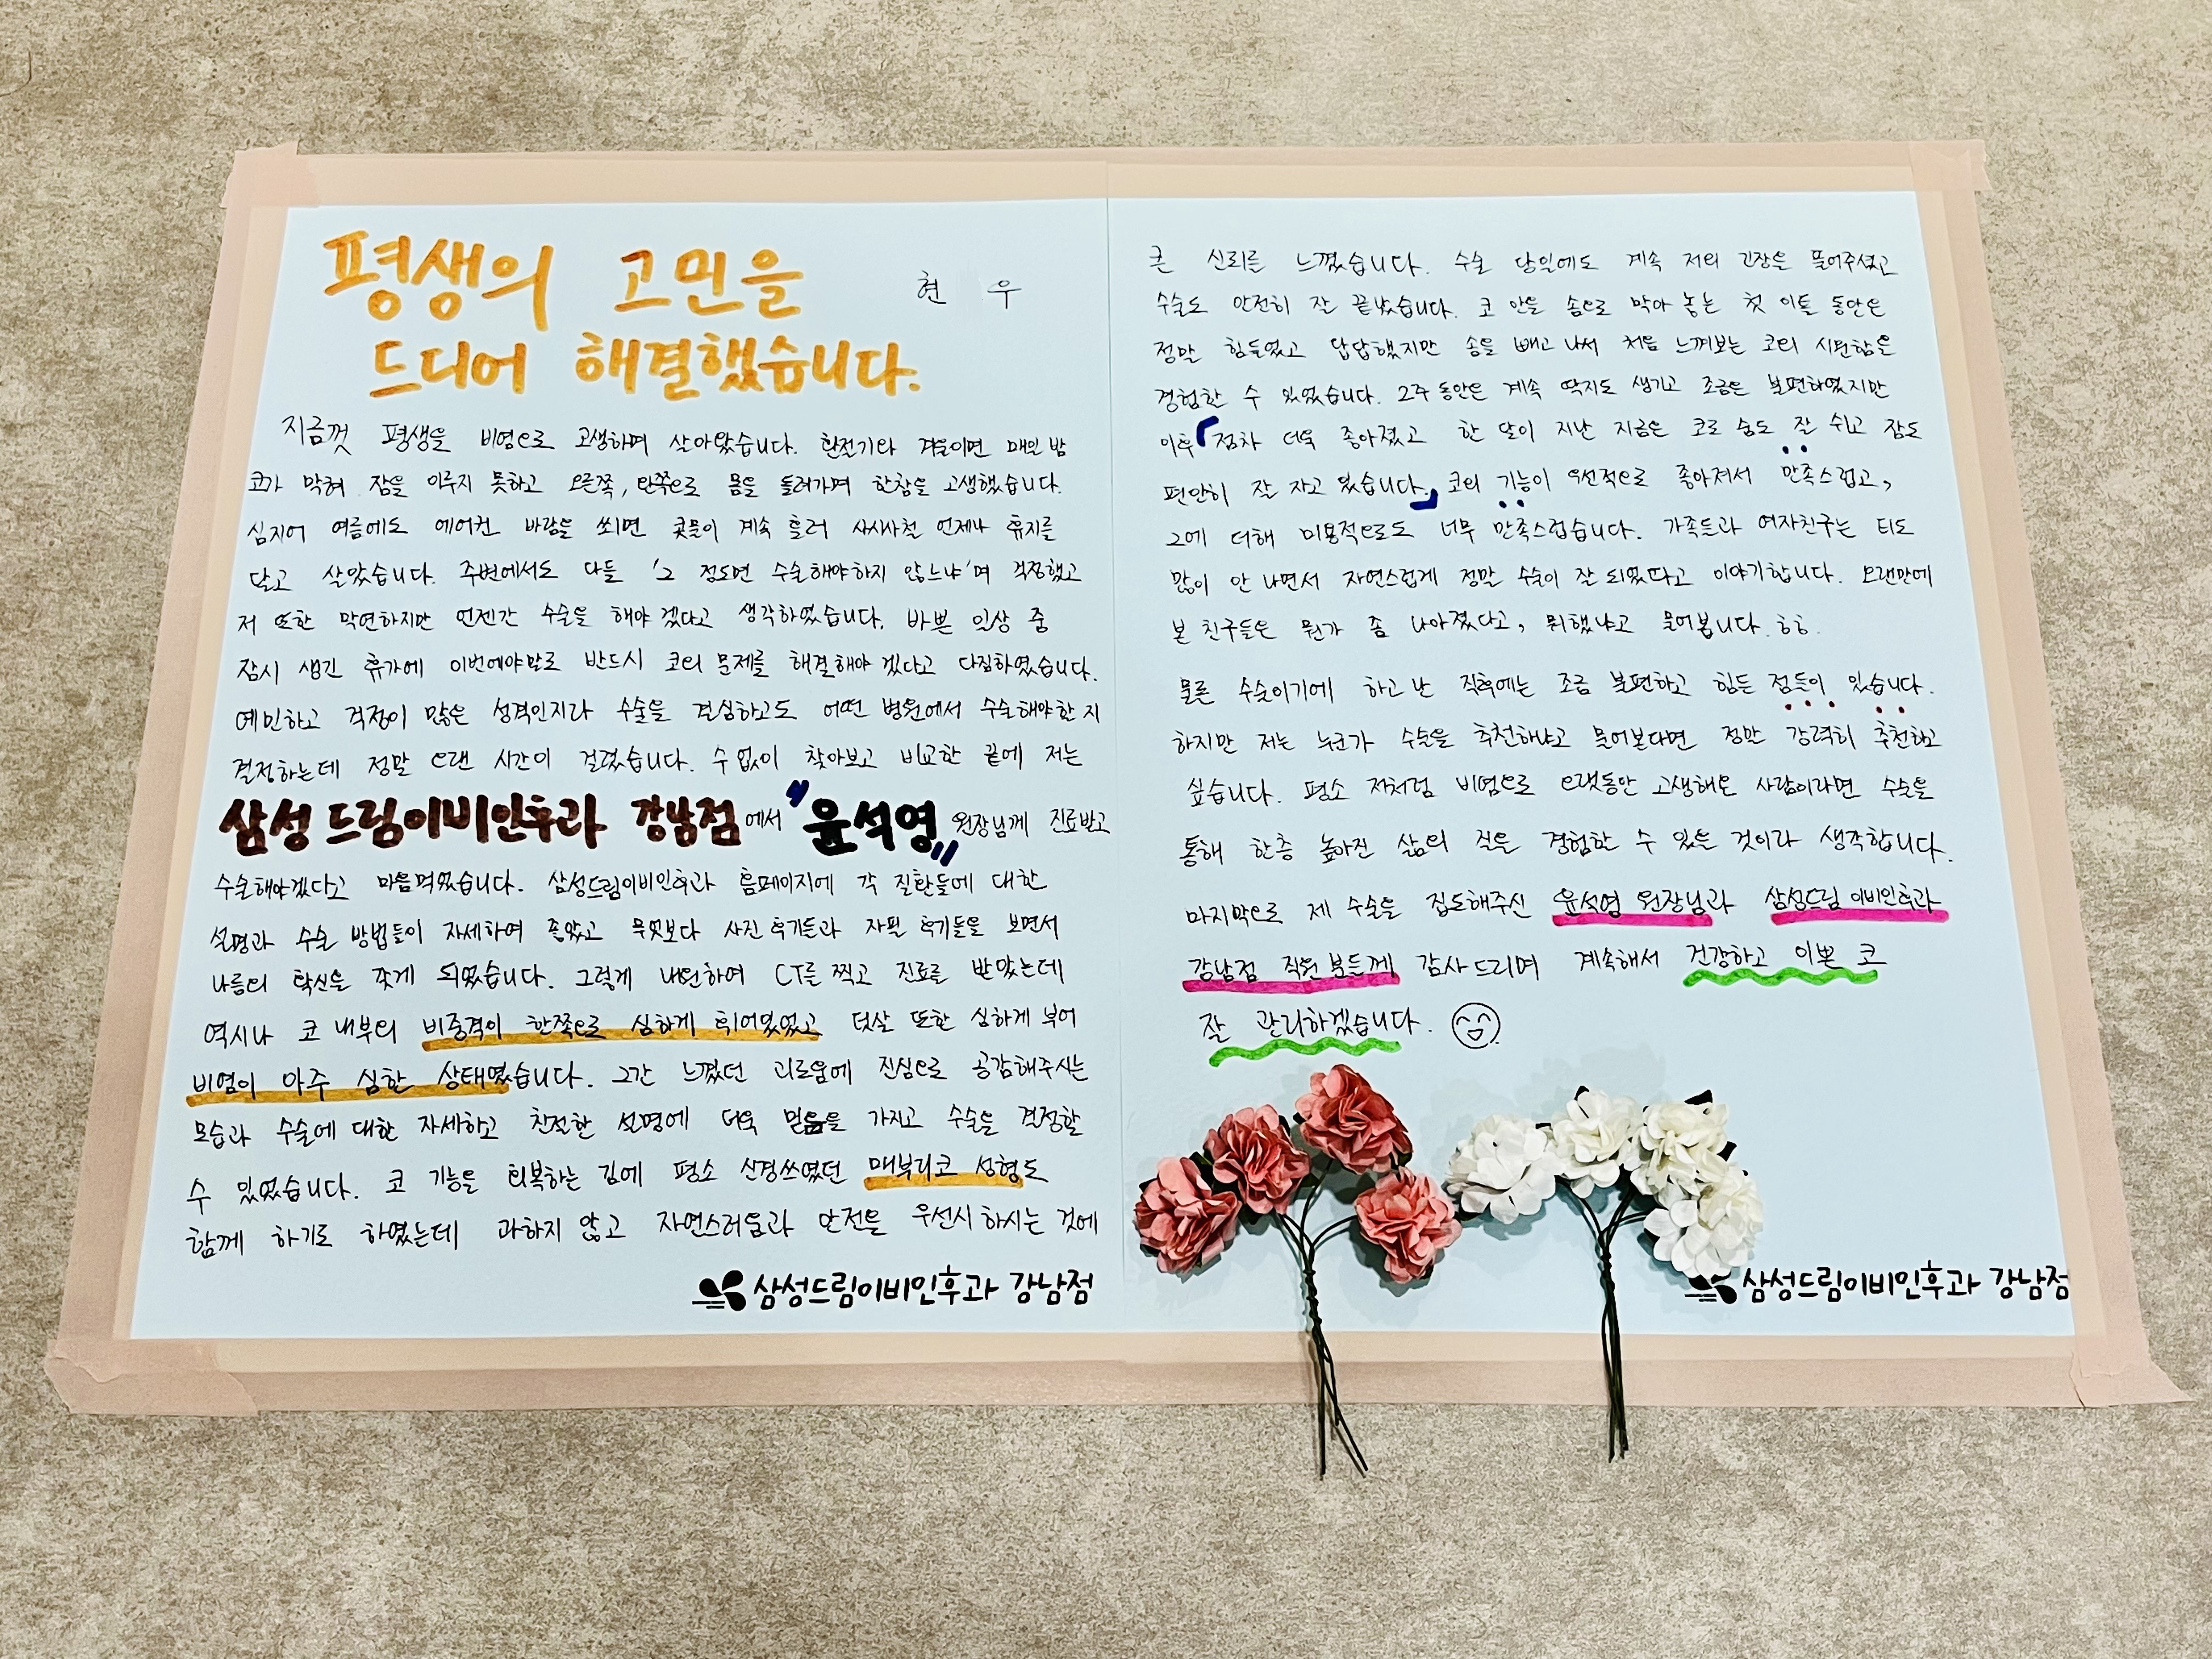 평생의 고민을
드디어 해결했습니다.
현 우
지금껏 평생을 비염으로 고생하며 살아왔습니다. 환절기나 겨울이면 매일 밤
코가 막혀 잠을 이루지 못하고 오른쪽, 왼쪽으로 몸을 돌려가며 한참을 고생했습니다.
심지어 여름에도 에어컨 바람을 쐬면 콧물이 계속 흘러 사시사철 언제나 휴지를
달고 살았습니다. 주변에서도 다들 '그 정도면 수술해야하지 않느냐'며 걱정했고
저 또한 막연하지만 언젠간 수술을 해야 겠다고 생각하였습니다. 바쁜 일상 중
잠시 생긴 휴가에 이번에야말로 반드시 코의 문제를 해결해야 겠다고 다짐하였습니다.
예민하고 걱정이 많은 성격인지라 수술을 결심하고도 어떤 병원에서 수술해야한지
결정하는데 정말 오랜 시간이 걸렸습니다. 수없이 찾아보고 비교한 끝에 저는
삼성드림이비인후과 강남점에서 "윤석영" 원장님께 진료받고
수술해야겠다고 마음먹었습니다. 삼성드림이비인후과 홈페이지에 각 질환들에 대한
설명과 수술 방법들이 자세하여 좋았고 무엇보다 사진 후기들과 자필 후기들을 보면서
나름의 확신을 갖게 되었습니다. 그렇게 내원하여 CT를 찍고 진료를 받았는데
역시나 코 내부의 비중격이 한쪽으로 심하게 휘어있었고 덧살 또한 심하게 부어
비염이 아주 심한 상태였습니다. 그간 느꼈던 괴로움에 진심으로 공감해주시는
모습과 수술에 대한 자세하고 친절한 설명에 더욱 믿음을 가지고 수술을 결정할
수 있었습니다. 코 기능을 회복하는 김에 평소 신경쓰였던 매부리코 성형도
함께 하기로 하였는데 과하지 않고 자연스러움과 안전을 우선시 하시는 것에
삼성드림이비인후과 강남점
큰 신뢰를 느꼈습니다. 수술 당일에도 계속 저의 긴장을 풀어주셨고
수술도 안전히 잘 끝났습니다. 코 안을 솜으로 막아 놓는 첫 이틀 동안은
정말 힘들었고 답답했지만 솜을 빼고 나서 처음 느껴보는 코의 시원함을
경험할 수 있었습니다. 2주 동안은 계속 딱지도 생기고 조금은 불편하였지만
이후「점차 더욱 좋아졌고 한 달이 지난 지금은 코로 숨도 잘 쉬고 잠도
편안히 잘 자고 있습니다.」 코의 기능이 우선적으로 좋아져서 만족스럽고,
그에 더해 미용적으로도 너무 만족스럽습니다. 가족들과 여자친구는 티도
많이 안 나면서 자연스럽게 정말 수술이 잘 되었다고 이야기합니다. 오랜만에
본 친구들은 뭔가 좀 나아졌다고, 뭐했냐고 물어봅니다. ㅎㅎ.
물론 수술이기에 하고 난 직후에는 조금 불편하고 힘든 점들이 있습니다.
하지만 저는 누군가 수술을 추천하냐고 물어본다면 정말 강력히 추천하고
싶습니다. 평소 저처럼 비염으로 오랫동안 고생해온 사람이라면 수술을
통해 한층 높아진 삶의 질을 경험할 수 있을 것이라 생각합니다.
마지막으로 제 수술을 집도해주신 윤석영 원장님과 삼성드림이비인후과
강남점 직원 분들께 감사드리며 계속해서 건강하고 이쁜 코
잘 관리하겠습니다.
삼성드림이비인후과 강남점